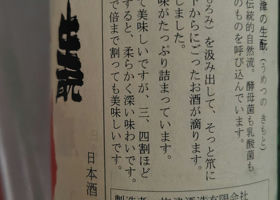 津の生酛（うめつの きもと）
伝統的自然流。酵母菌も乳酸菌も
ものを呼び込んでいます。
ろみ）を汲み出して、そっと爪に
からにごったお酒が滴ります。
しました。
味がたっぷり詰まっています。
て美味しいですが、三、四割ほど
すると、柔らかく深い味わいです。
で倍まで割っても美味しいです。
日本酒
生酛
酒造有限会社